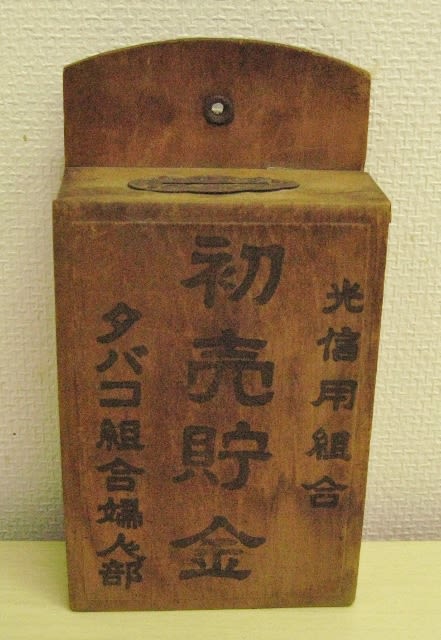 光信用組合
初売貯金
タバコ組合婦人部